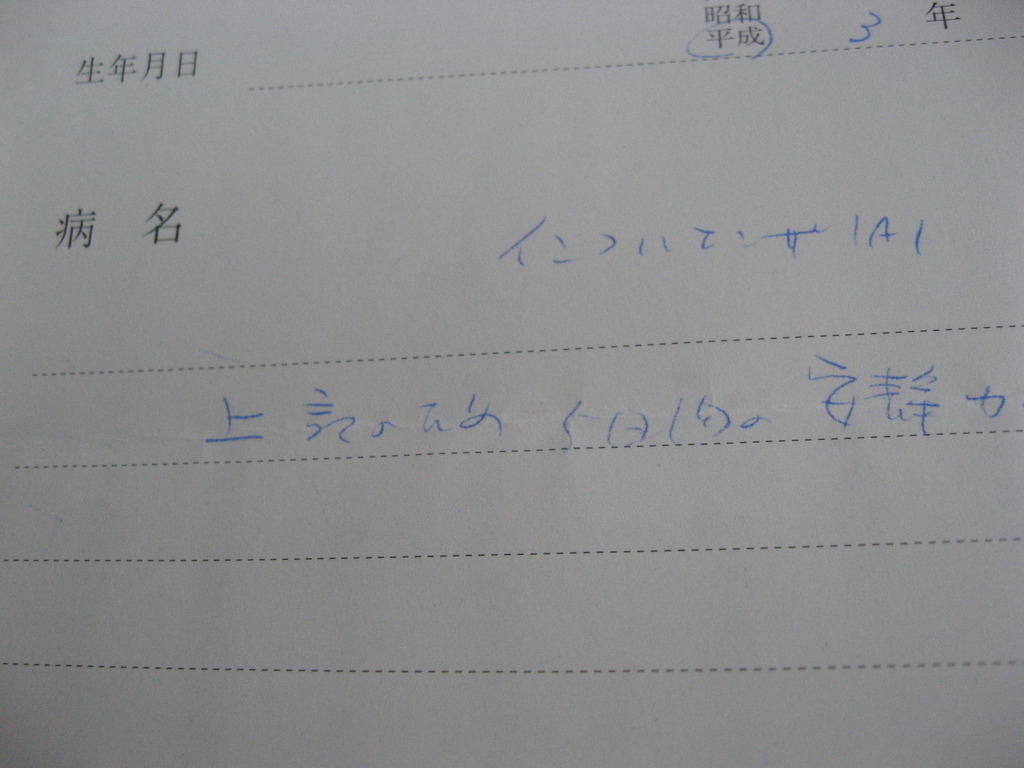 昭和
平成 3 年
生年月日
病名 インフルエンザ(A)
上記のため 5日間の安静が